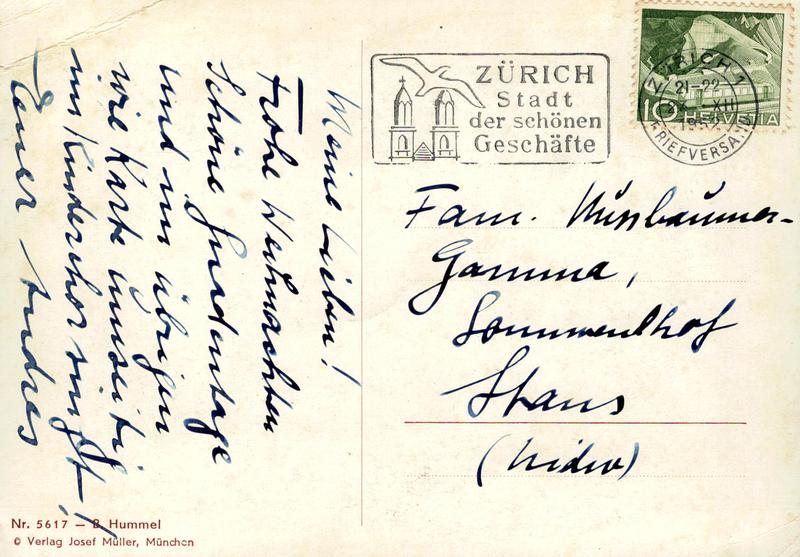 Meine Lieben!
Frohe Weihnachten
Schöne Gnadentage
und im übrigen
wie Karte umseitig
ins Kinderchor singt!
Euer Andres
ZÜRICH
Stadt
der schönen
Geschäfte
ZÜRICH 1
21-22
XII
BRIEFVERSAND
10 HELVETIA
Fam. Nussbaumer-
Gamma,
Sonnenthof
Stans
(Nidw)
Nr. 5617 – B. Hummel
© Verlag Josef Müller, München